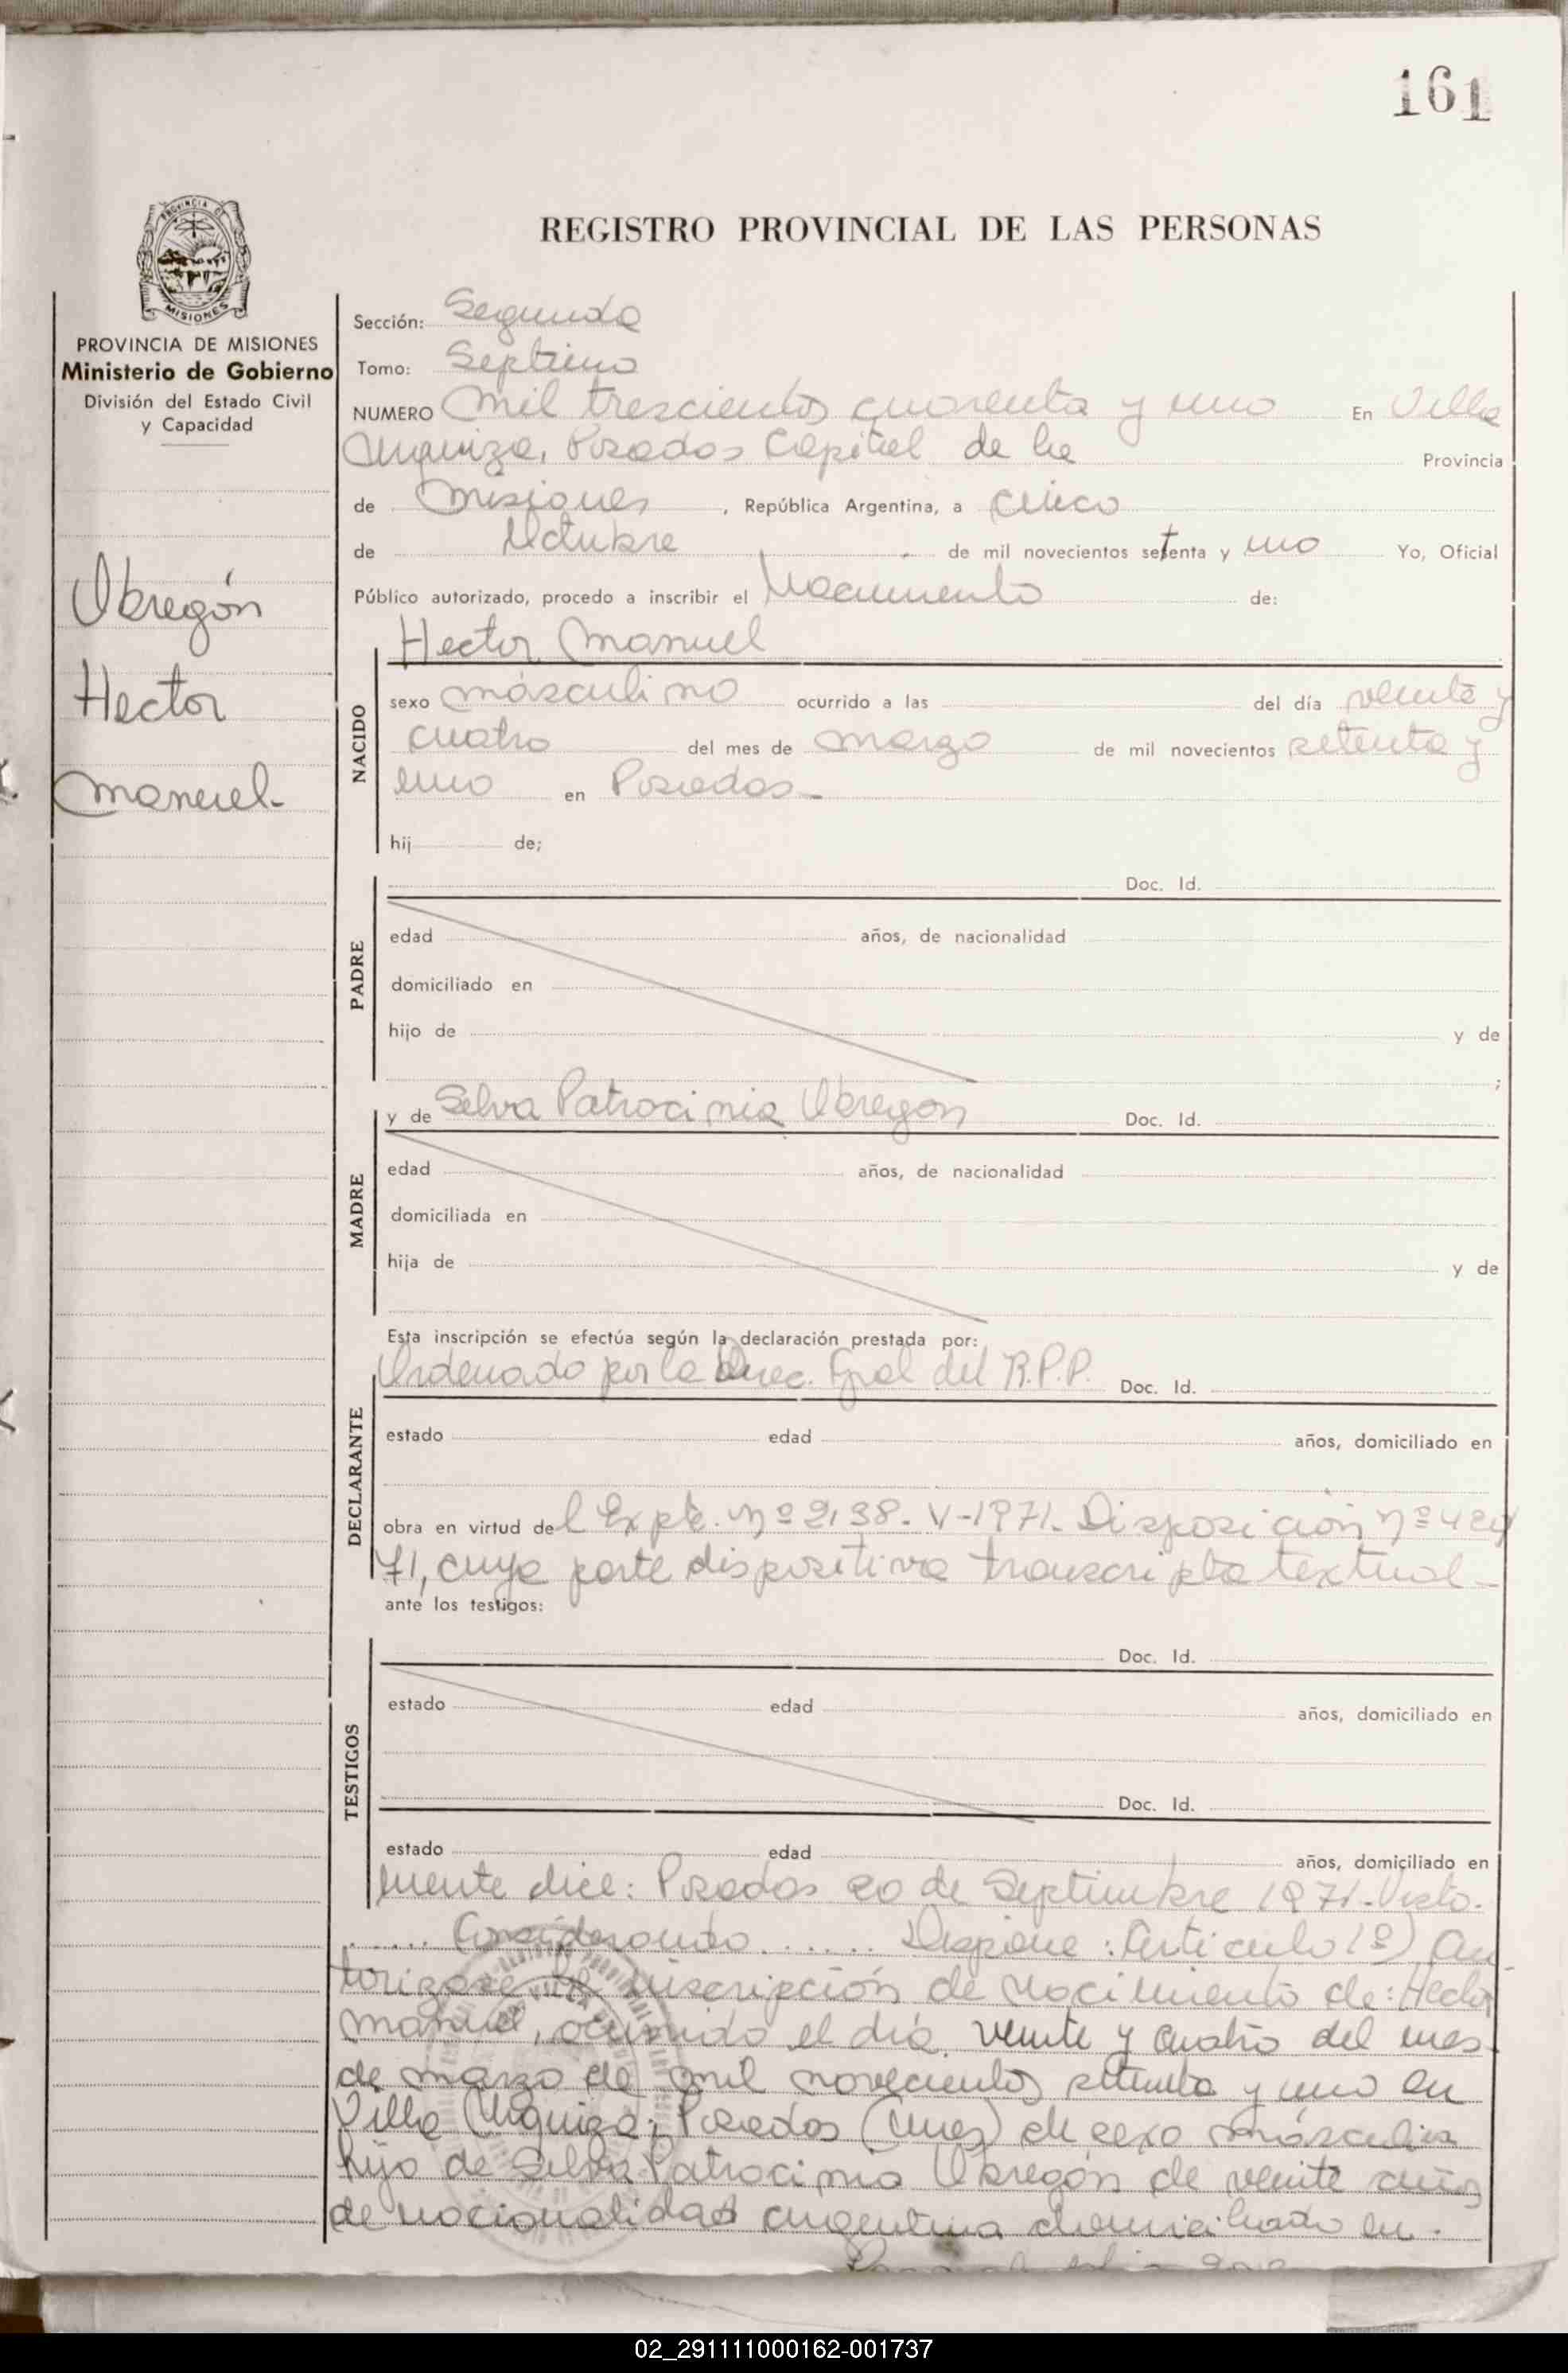 161
PROVINCIA DE
MISIONES
REGISTRO PROVINCIAL DE LAS PERSONAS
PROVINCIA DE MISIONES
Ministerio de Gobierno
División del Estado Civil
y Capacidad
Obregón
Hector
Manuel-
Sección: Segunda
Tomo: Septimo
NUMERO Mil trescientos cuarenta y uno En Villa
Urquiza, Posadas Capital de la Provincia
de Misiones, República Argentina, a cinco
de Octubre de mil novecientos setenta y uno Yo, Oficial
Público autorizado, procedo a inscribir el Nacimiento de:
Hector Manuel
NACIDO
sexo másculino ocurrido a las del día veinte y
cuatro del mes de marzo de mil novecientos setenta y
uno en Posadas-
hij de;
PADRE
Doc. Id.
edad años, de nacionalidad
domiciliado en
hijo de y de
;
MADRE
y de Selva Patrocinia Obregon Doc. Id.
edad años, de nacionalidad
domiciliada en
hija de y de
Esta inscripción se efectúa según la declaración prestada por:
DECLARANTE
Ordenado por la Direc. Gral del R.P.P. Doc. Id.
estado edad años, domiciliado en
obra en virtud del Expte. Nº 2138- V-1971- Disposición nº
71, cuya parte dispositiva transcripta textual-
ante los testigos:
TESTIGOS
Doc. Id.
estado edad años, domiciliado en
Doc. Id.
estado edad años, domiciliado en
mente dice: Posadas 20 de Septiembre 1971- Visto.
..... Considerando ...... Dispone: Articulo 1º) Au
torizase la inscripción de nacimiento de: Hector
Manuel, ocurrido el día veinte y cuatro del mes
de marzo de mil novecientos setenta y uno en
Villa Urquiza; Posadas (Mnes) de sexo másculino
hijo de Selva Patrocinia Obregón de veinte años
de nacionalidad argentina domiciliado en.
02_291111000162-001737